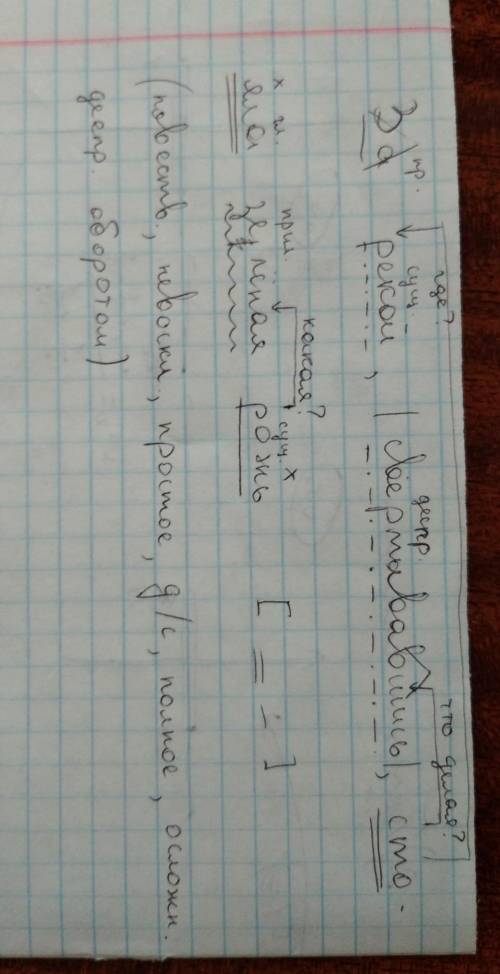 где? что делая?
пр. сущ. деепр.
За рекой, |свёртывавшись|, сто-
какая?
х гл. прил. сущ. х
яла зеленая рожь [ = - ]
(повеств., невоскл., простое, д/с, полное, осложн.
деепр. оборотом)